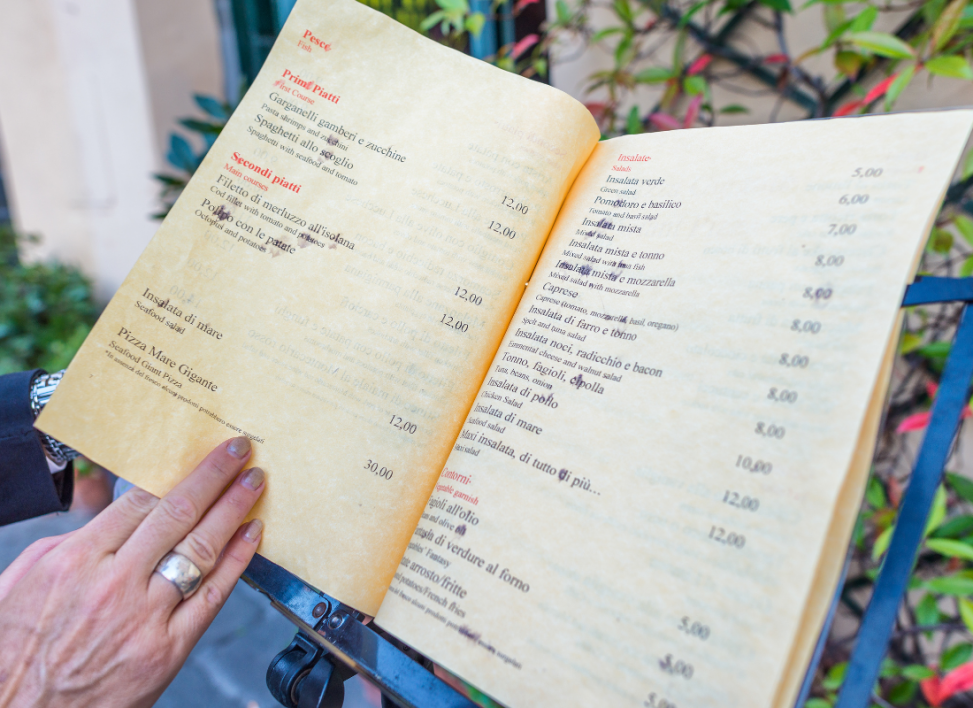 Pesce
Fish
Primi Piatti
First Course
Garganelli gamberi e zucchine
Pasta shrimps and zucchini
12,00
Spaghetti allo scoglio
Spaghetti with seafood and tomato
12,00
Secondi piatti
Main courses
Filetto di merluzzo all'isolana
Cod fillet with tomato and potatoes
12,00
Polipo con le patate
Octopus and potatoes
12,00
Insalata di mare
Seafood salad
12,00
Pizza Mare Gigante
Seafood Giant Pizza
30,00
*In assenza del fresco alcuni prodotti potrebbero essere surgelati
Insalate
Salads
Insalata verde 5,00
Green salad
Pomodoro e basilico 6,00
Tomato and basil salad
Insalata mista 7,00
Mixed salad
Insalata mista e tonno 8,00
Mixed salad with tuna fish
Insalata mista e mozzarella 8,00
Mixed salad with mozzarella
Caprese 8,00
Caprese (tomato, mozzarella, basil, oregano)
Insalata di farro e tonno 8,00
Spelt and tuna salad
Insalata noci, radicchio e bacon 8,00
Emmental cheese and walnut salad
Tonno, fagioli, cipolla 8,00
Tuna, beans, onion
Insalata di pollo 10,00
Chicken Salad
Insalata di mare 12,00
Seafood salad
Maxi insalata, di tutto di più... 12,00
salad
Contorni
garnish
all'olio 5,00
and olive oil
di verdure al forno 5,00
Fantasy
arrosto/fritte 5,00
potatoes/French fries